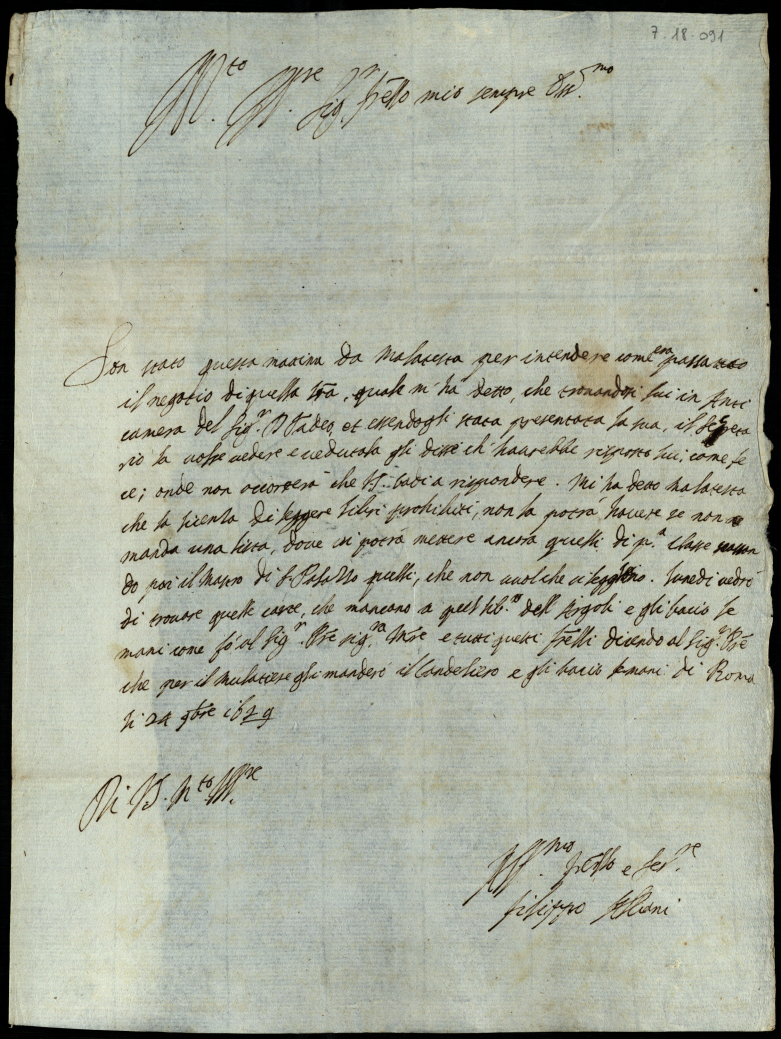 7-18-091
M.to Ill.re Sig.r frello mio sempre Oss.mo
Son stato questa matina da Malatesta per intendere come era passato
il negotio di quella lra, quale m'ha detto, che trovandosi lui in Anti
camera del Sig.r D Tadeo, et essendogli stata presentata la sua, il Segreta
rio la volse vedere e veduta la gli disse ch'haurebbe risposto lui, come fe
ce; onde non occorerà che VS. badi a rispondere. Mi ha detto Malatesta
che la licenza di leggere libri prohibiti, non la potrà havere se non
manda una lista, dove ci potrà mettere ancora quelli di p.a Classe
do poi il Mastro di S. Palazzo quelli, che non vuol che si legghino. Lunedi vedrò
di trovare quelle carte, che mancano a quel lib.ro dell'Argoli e gli bacio le
mani come fò al Sig.r Pre sig.ra Mre e tutti questi frelli dicendo al Sig.r Pre
che per il mulatiere gli manderò il Candeliero e gli bacio le mani di Roma
li 24 9bre 1629
Di V.S. M.to Ill.re
Aff.mo frello e Ser.re
Filippo